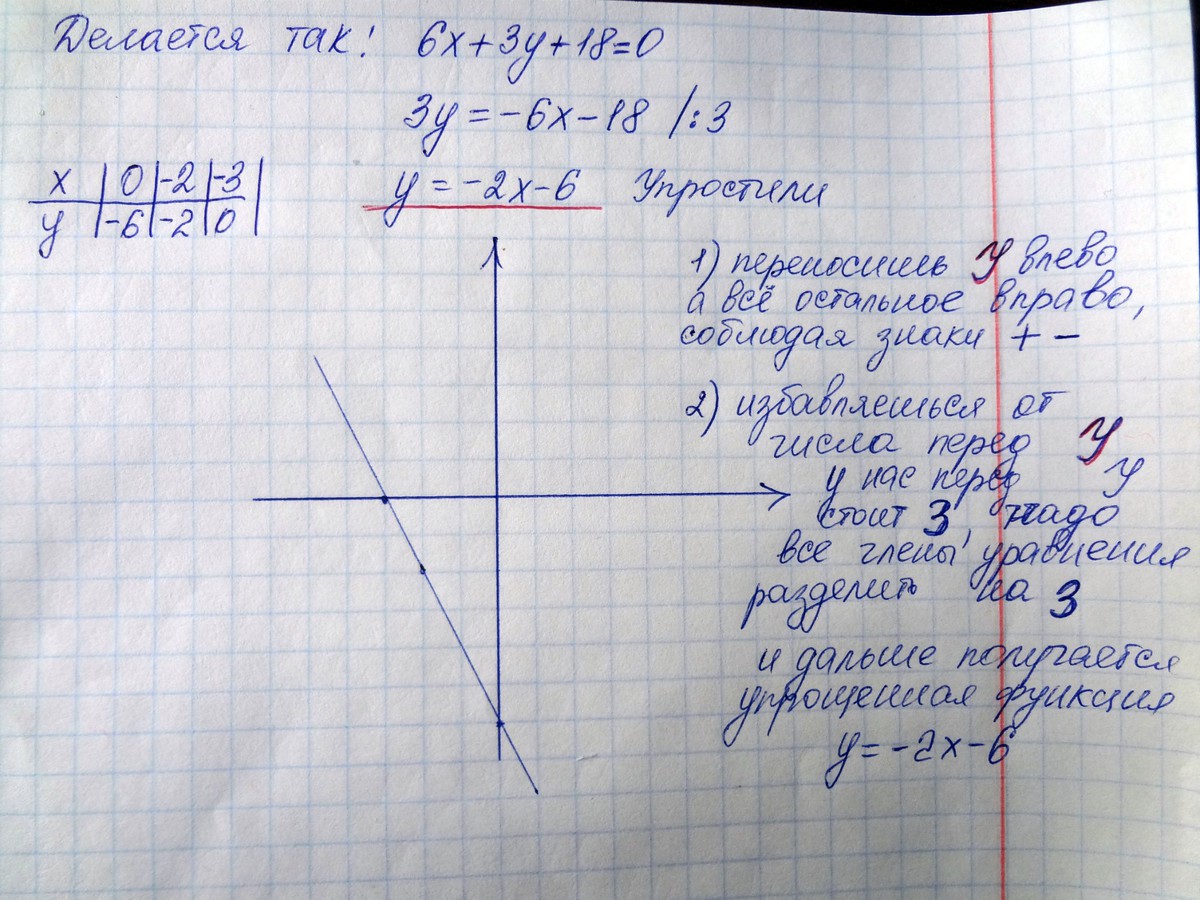 Делается так! 6x+3y+18=0
3y=-6x-18 /:3
x | 0 | -2 | -3 |
y | -6 | -2 | 0 |
y=-2x-6 Упростили
1) переносишь У влево
а всё остальное вправо,
соблюдая знаки + -
2) избавляешься от
числа перед У
у нас перед У
стоит 3 надо
все члены уравнения
разделить на 3
и дальше получается
упрощенная функция
y=-2x-6